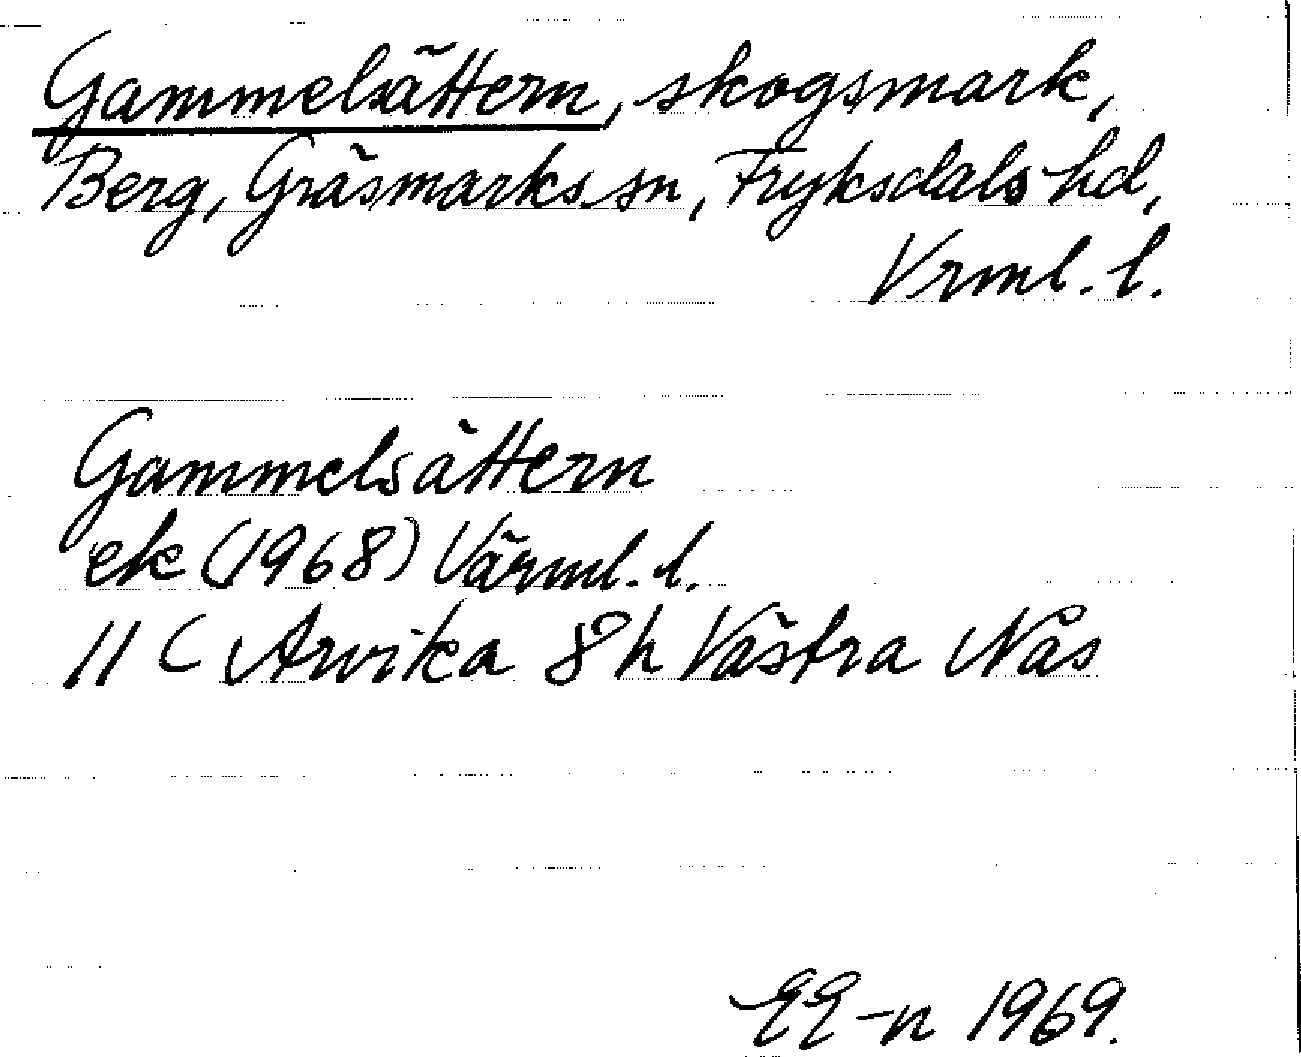 Gammelsättern, skogsmark,
Berg, Gräsmarks sn, Fryksdals hd,
Vrml. l.
Gammelsättern
ek (1968) Värml. l.
11 C Arvika 8 h Västra Nås
EE-n 1969.